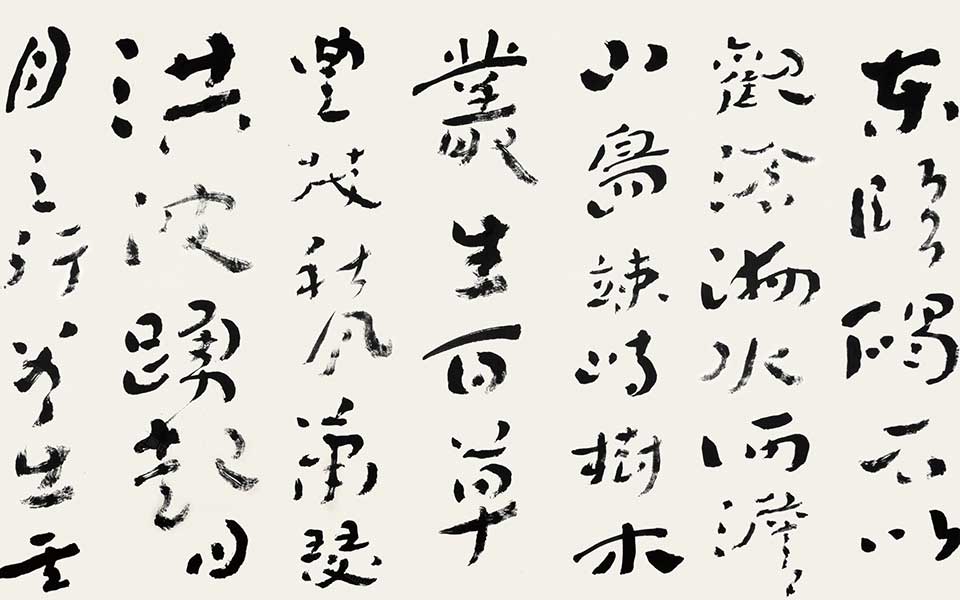 東臨碣石以
觀滄海水何澹
山島竦峙樹木
叢生百草
豐茂秋風蕭瑟
洪波踴起日
月之行若出其